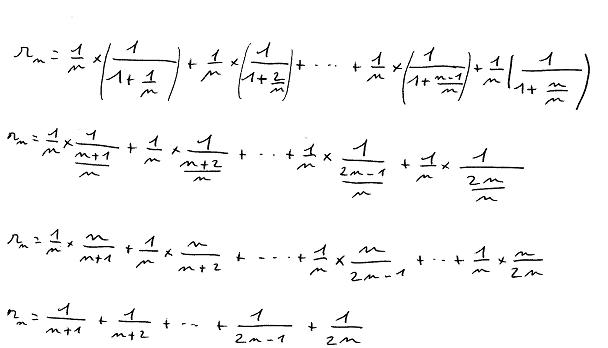 r_n = 1/n × (1/(1 + 1/n)) + 1/n × (1/(1 + 2/n)) + ... + 1/n × (1/(1 + (n-1)/n)) + 1/n (1/(1 + n/n))
r_n = 1/n × 1/((n+1)/n) + 1/n × 1/((n+2)/n) + ... + 1/n × 1/((2n-1)/n) + 1/n × 1/(2n/n)
r_n = 1/n × n/(n+1) + 1/n × n/(n+2) + ... + 1/n × n/(2n-1) + ... + 1/n × n/2n
r_n = 1/(n+1) + 1/(n+2) + ... + 1/(2n-1) + 1/2n